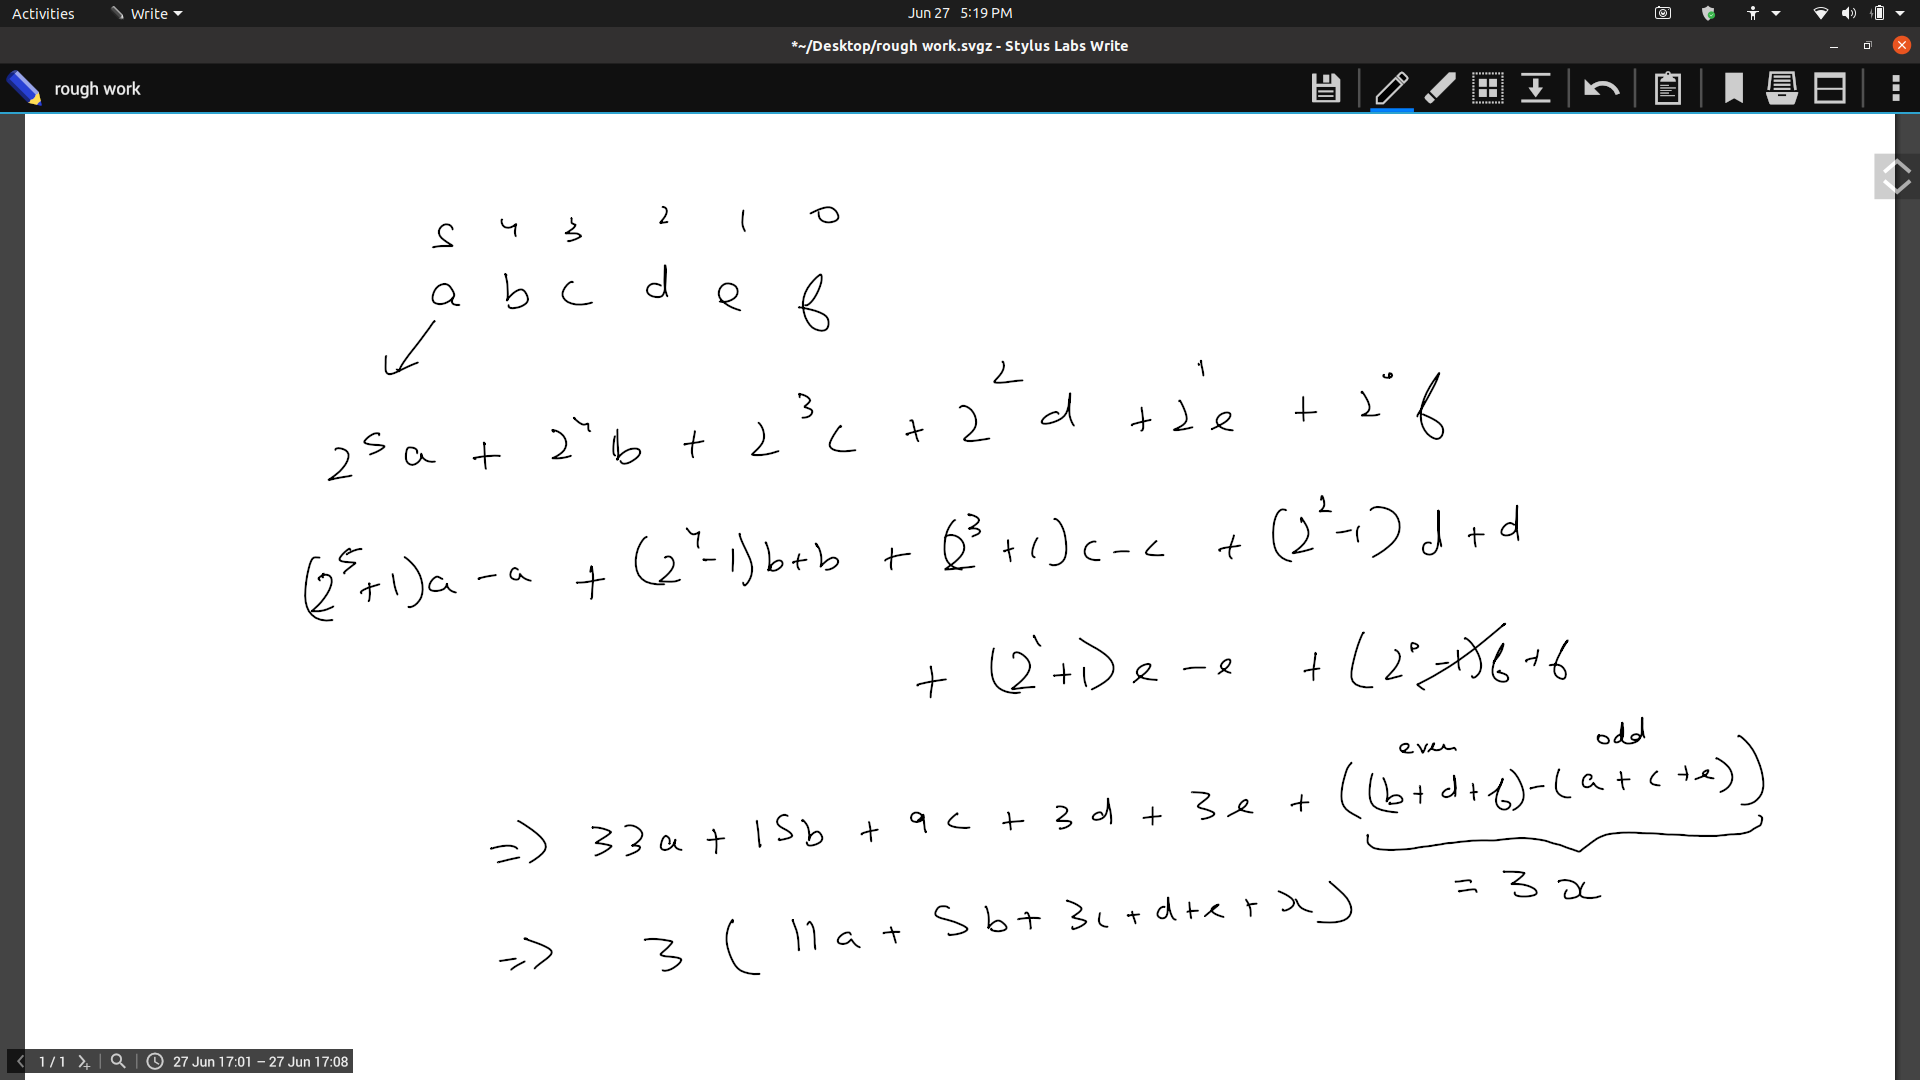 Activities Write Jun 27 5:19 PM
*~/Desktop/rough work.svgz - Stylus Labs Write
rough work
5 4 3 2 1 0
a b c d e f
2⁵a + 2⁴b + 2³c + 2²d + 2¹e + 2⁰f
(2⁵+1)a - a + (2⁴-1)b+b + (2³+1)c-c + (2²-1)d+d
+ (2¹+1)e - e + (2⁰-1)f+f
even odd
=> 33a + 15b + 9c + 3d + 3e + ((b+d+f)-(a+c+e))
= 3x
=> 3 (11a + 5b + 3c + d+e + x)
1 / 1 27 Jun 17:01 – 27 Jun 17:08